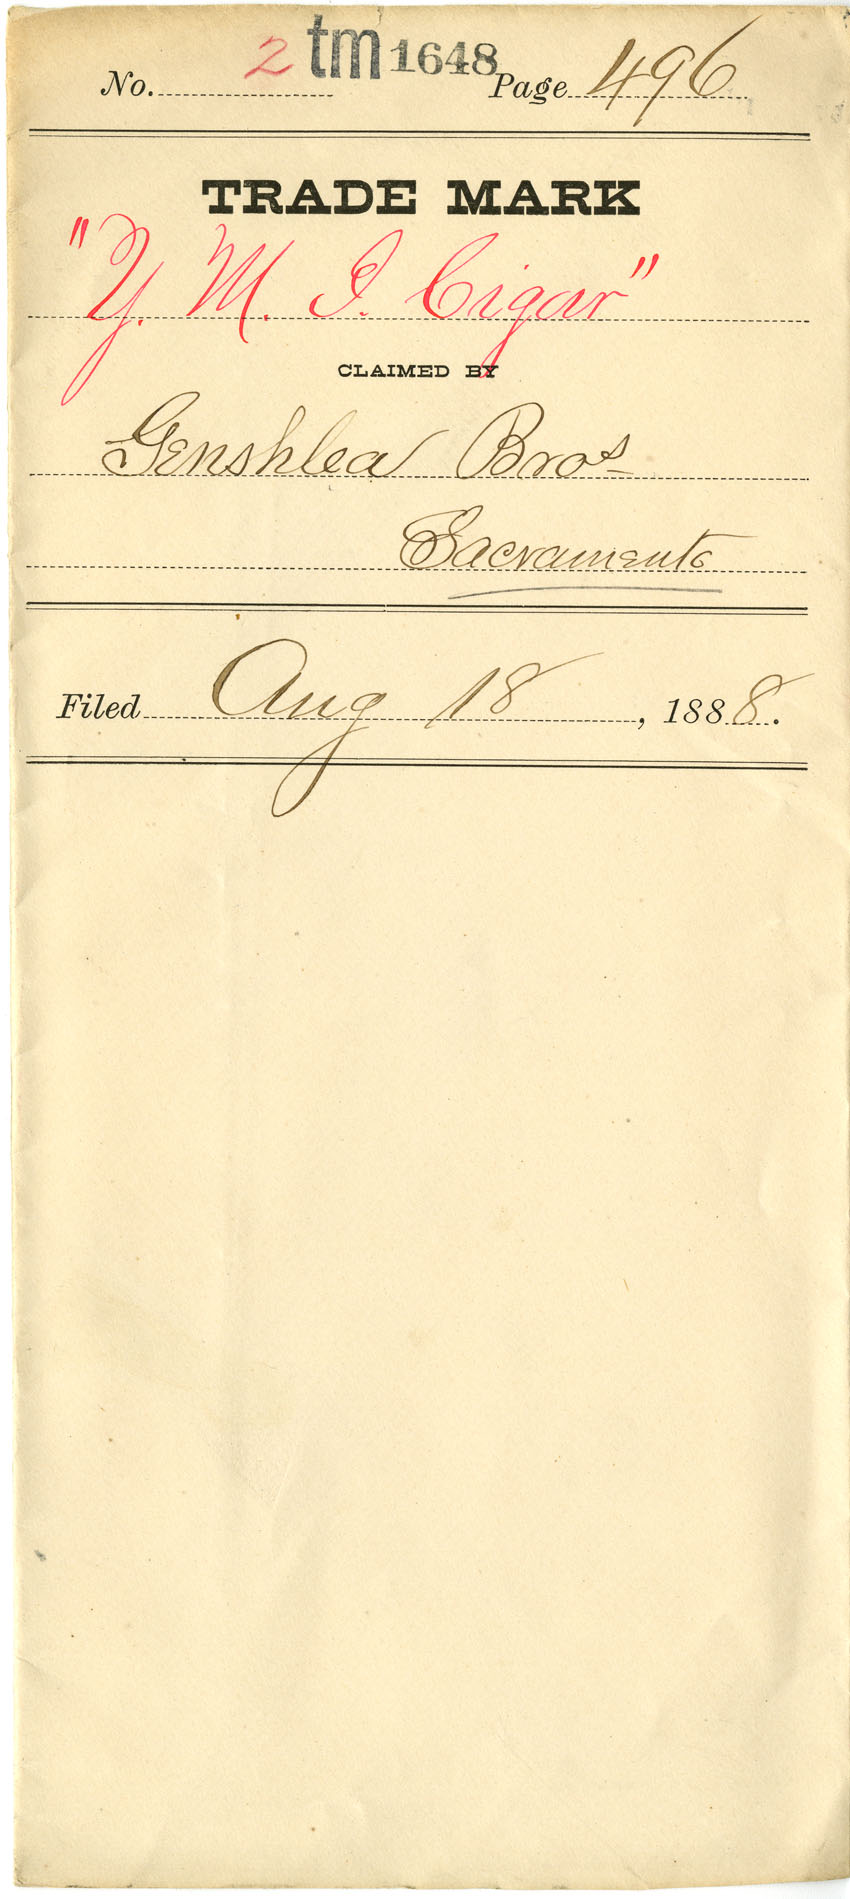 No. 2 tm 1648 Page 496
TRADE MARK
"Y. M. I. Cigar"
CLAIMED BY
Genshlea Bros
Sacramento
Filed Aug 18, 1888.